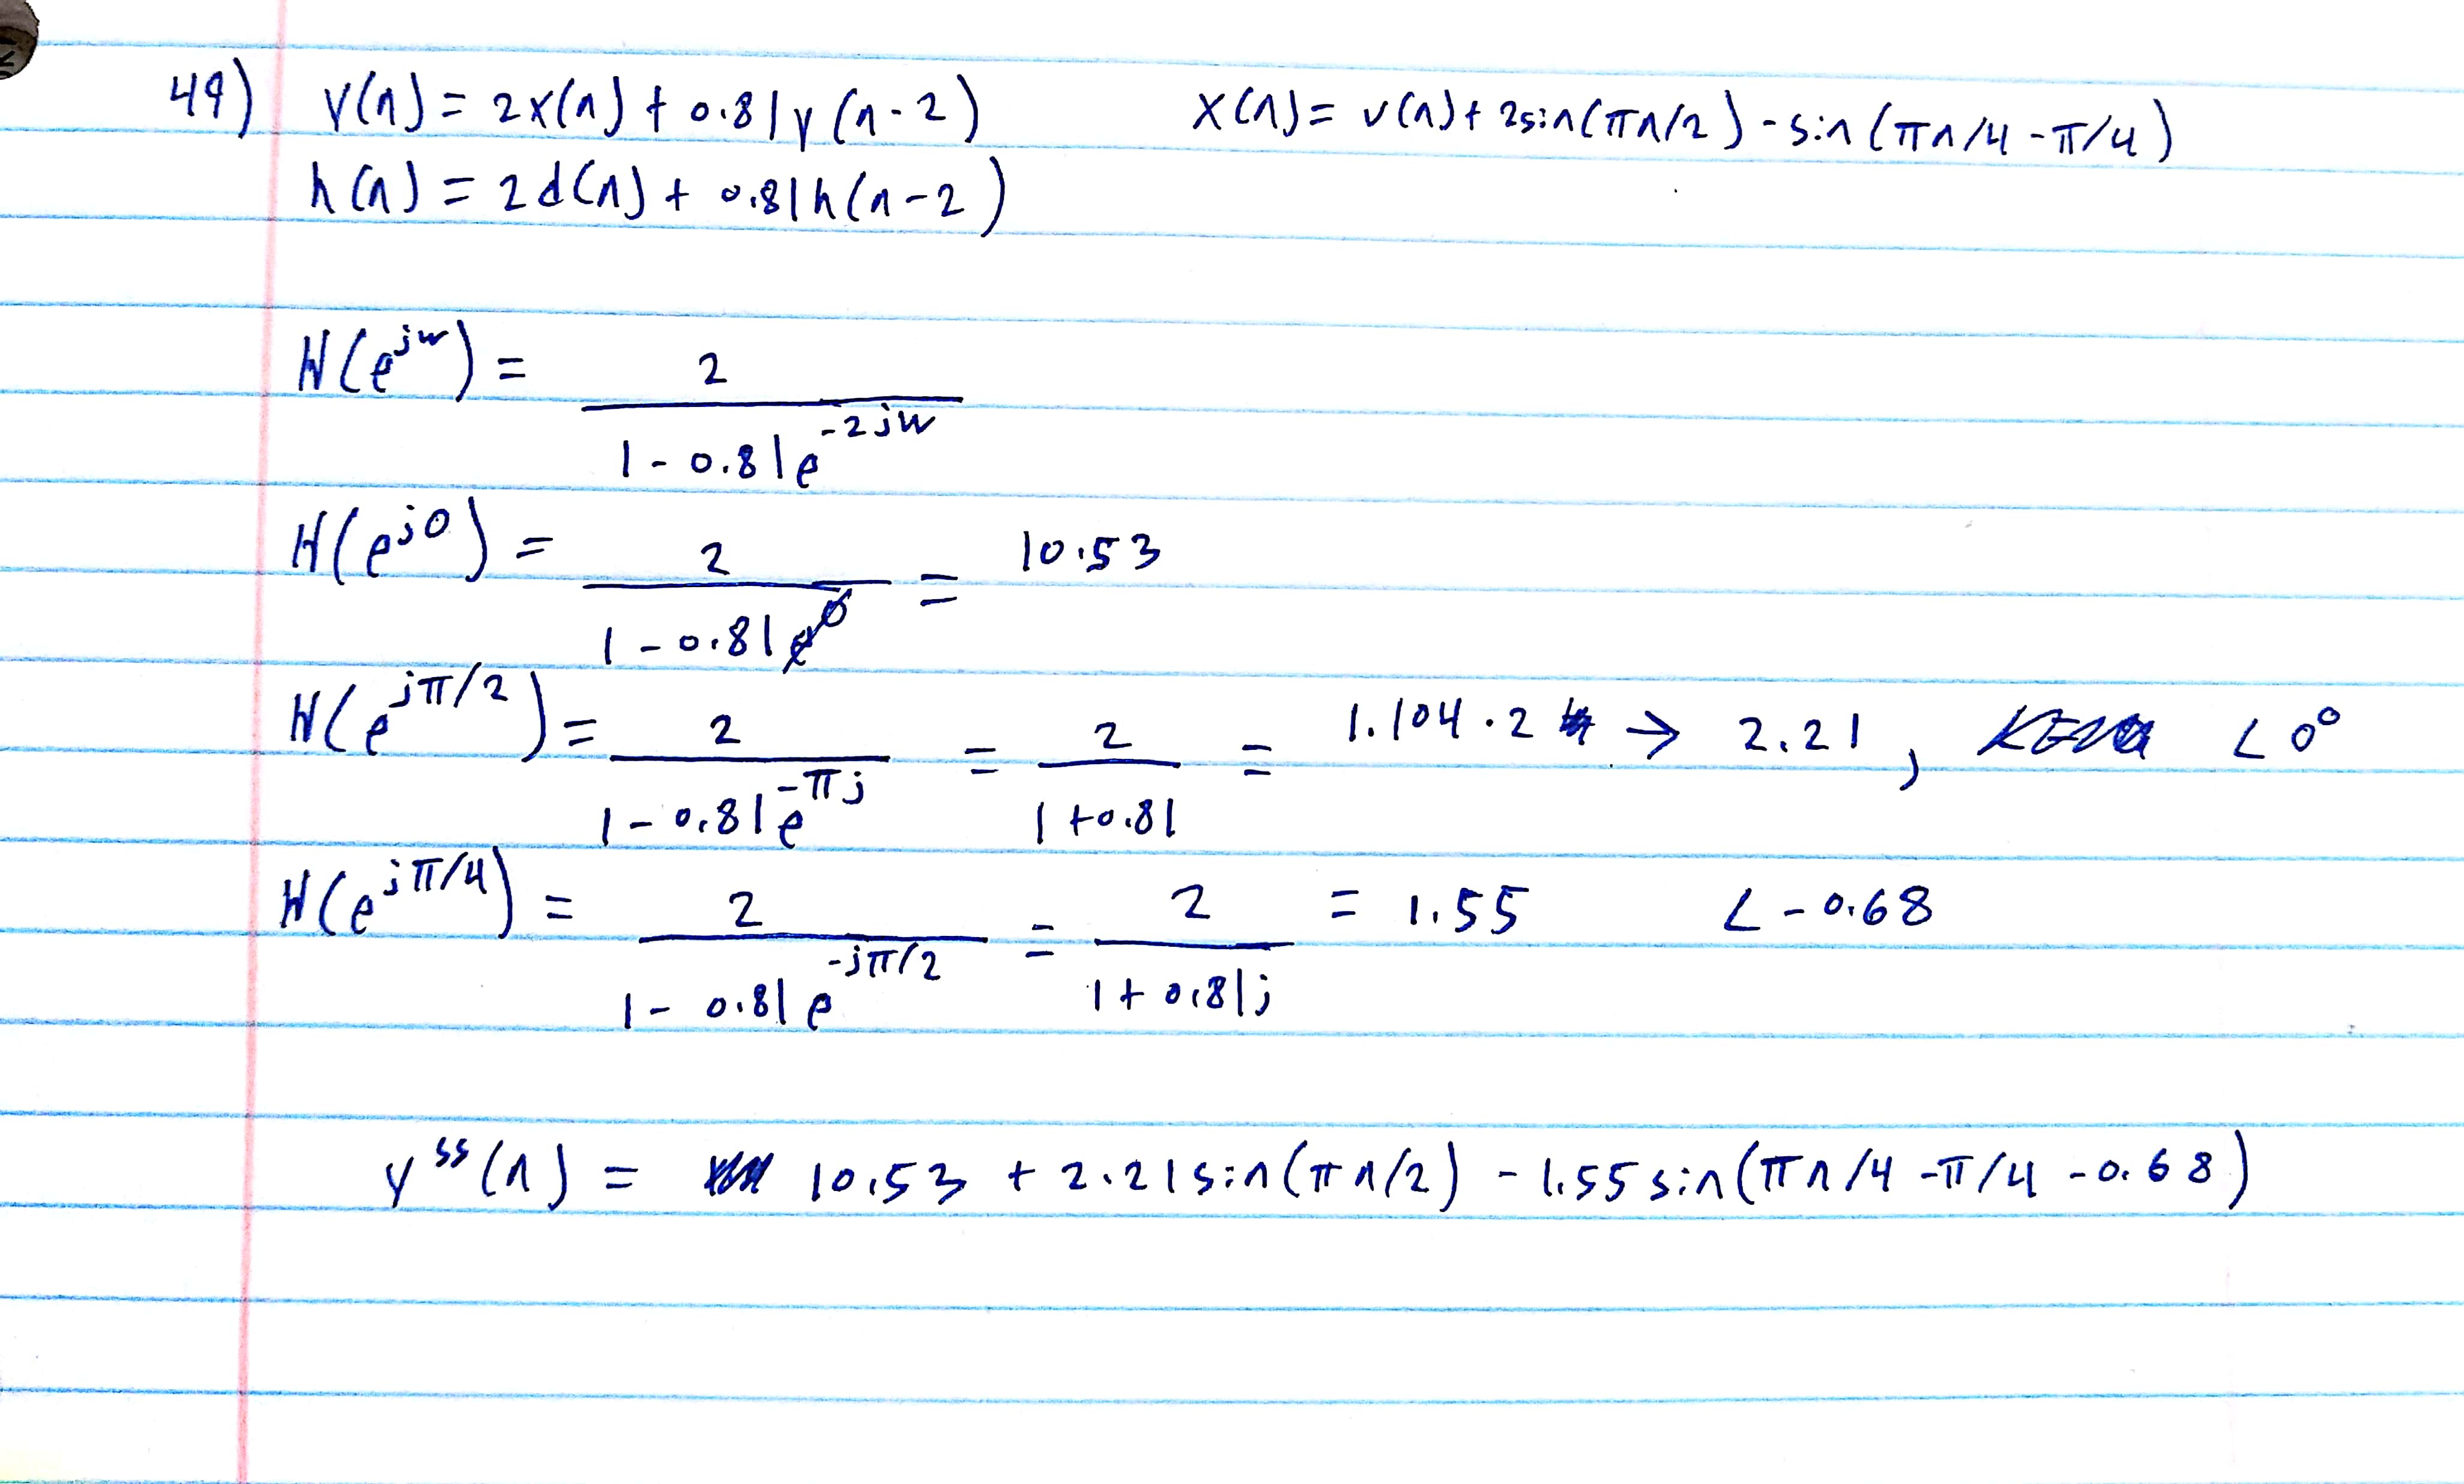 49) y(n) = 2x(n) + 0.81y(n-2) x(n) = u(n) + 2sin(πn/2) - sin(πn/4 - π/4)
h(n) = 2d(n) + 0.81h(n-2)
H(e^jw) = 2 / (1 - 0.81e^-2jw)
H(e^j0) = 2 / (1 - 0.81e^0) = 10.53
H(e^jπ/2) = 2 / (1 - 0.81e^-πj) = 2 / (1+0.81) = 1.104·2 → 2.21, ∠0°
H(e^jπ/4) = 2 / (1 - 0.81e^-jπ/2) = 2 / (1+0.81j) = 1.55 ∠-0.68
y^ss(n) = 10.53 + 2.21sin(πn/2) - 1.55sin(πn/4 - π/4 - 0.68)